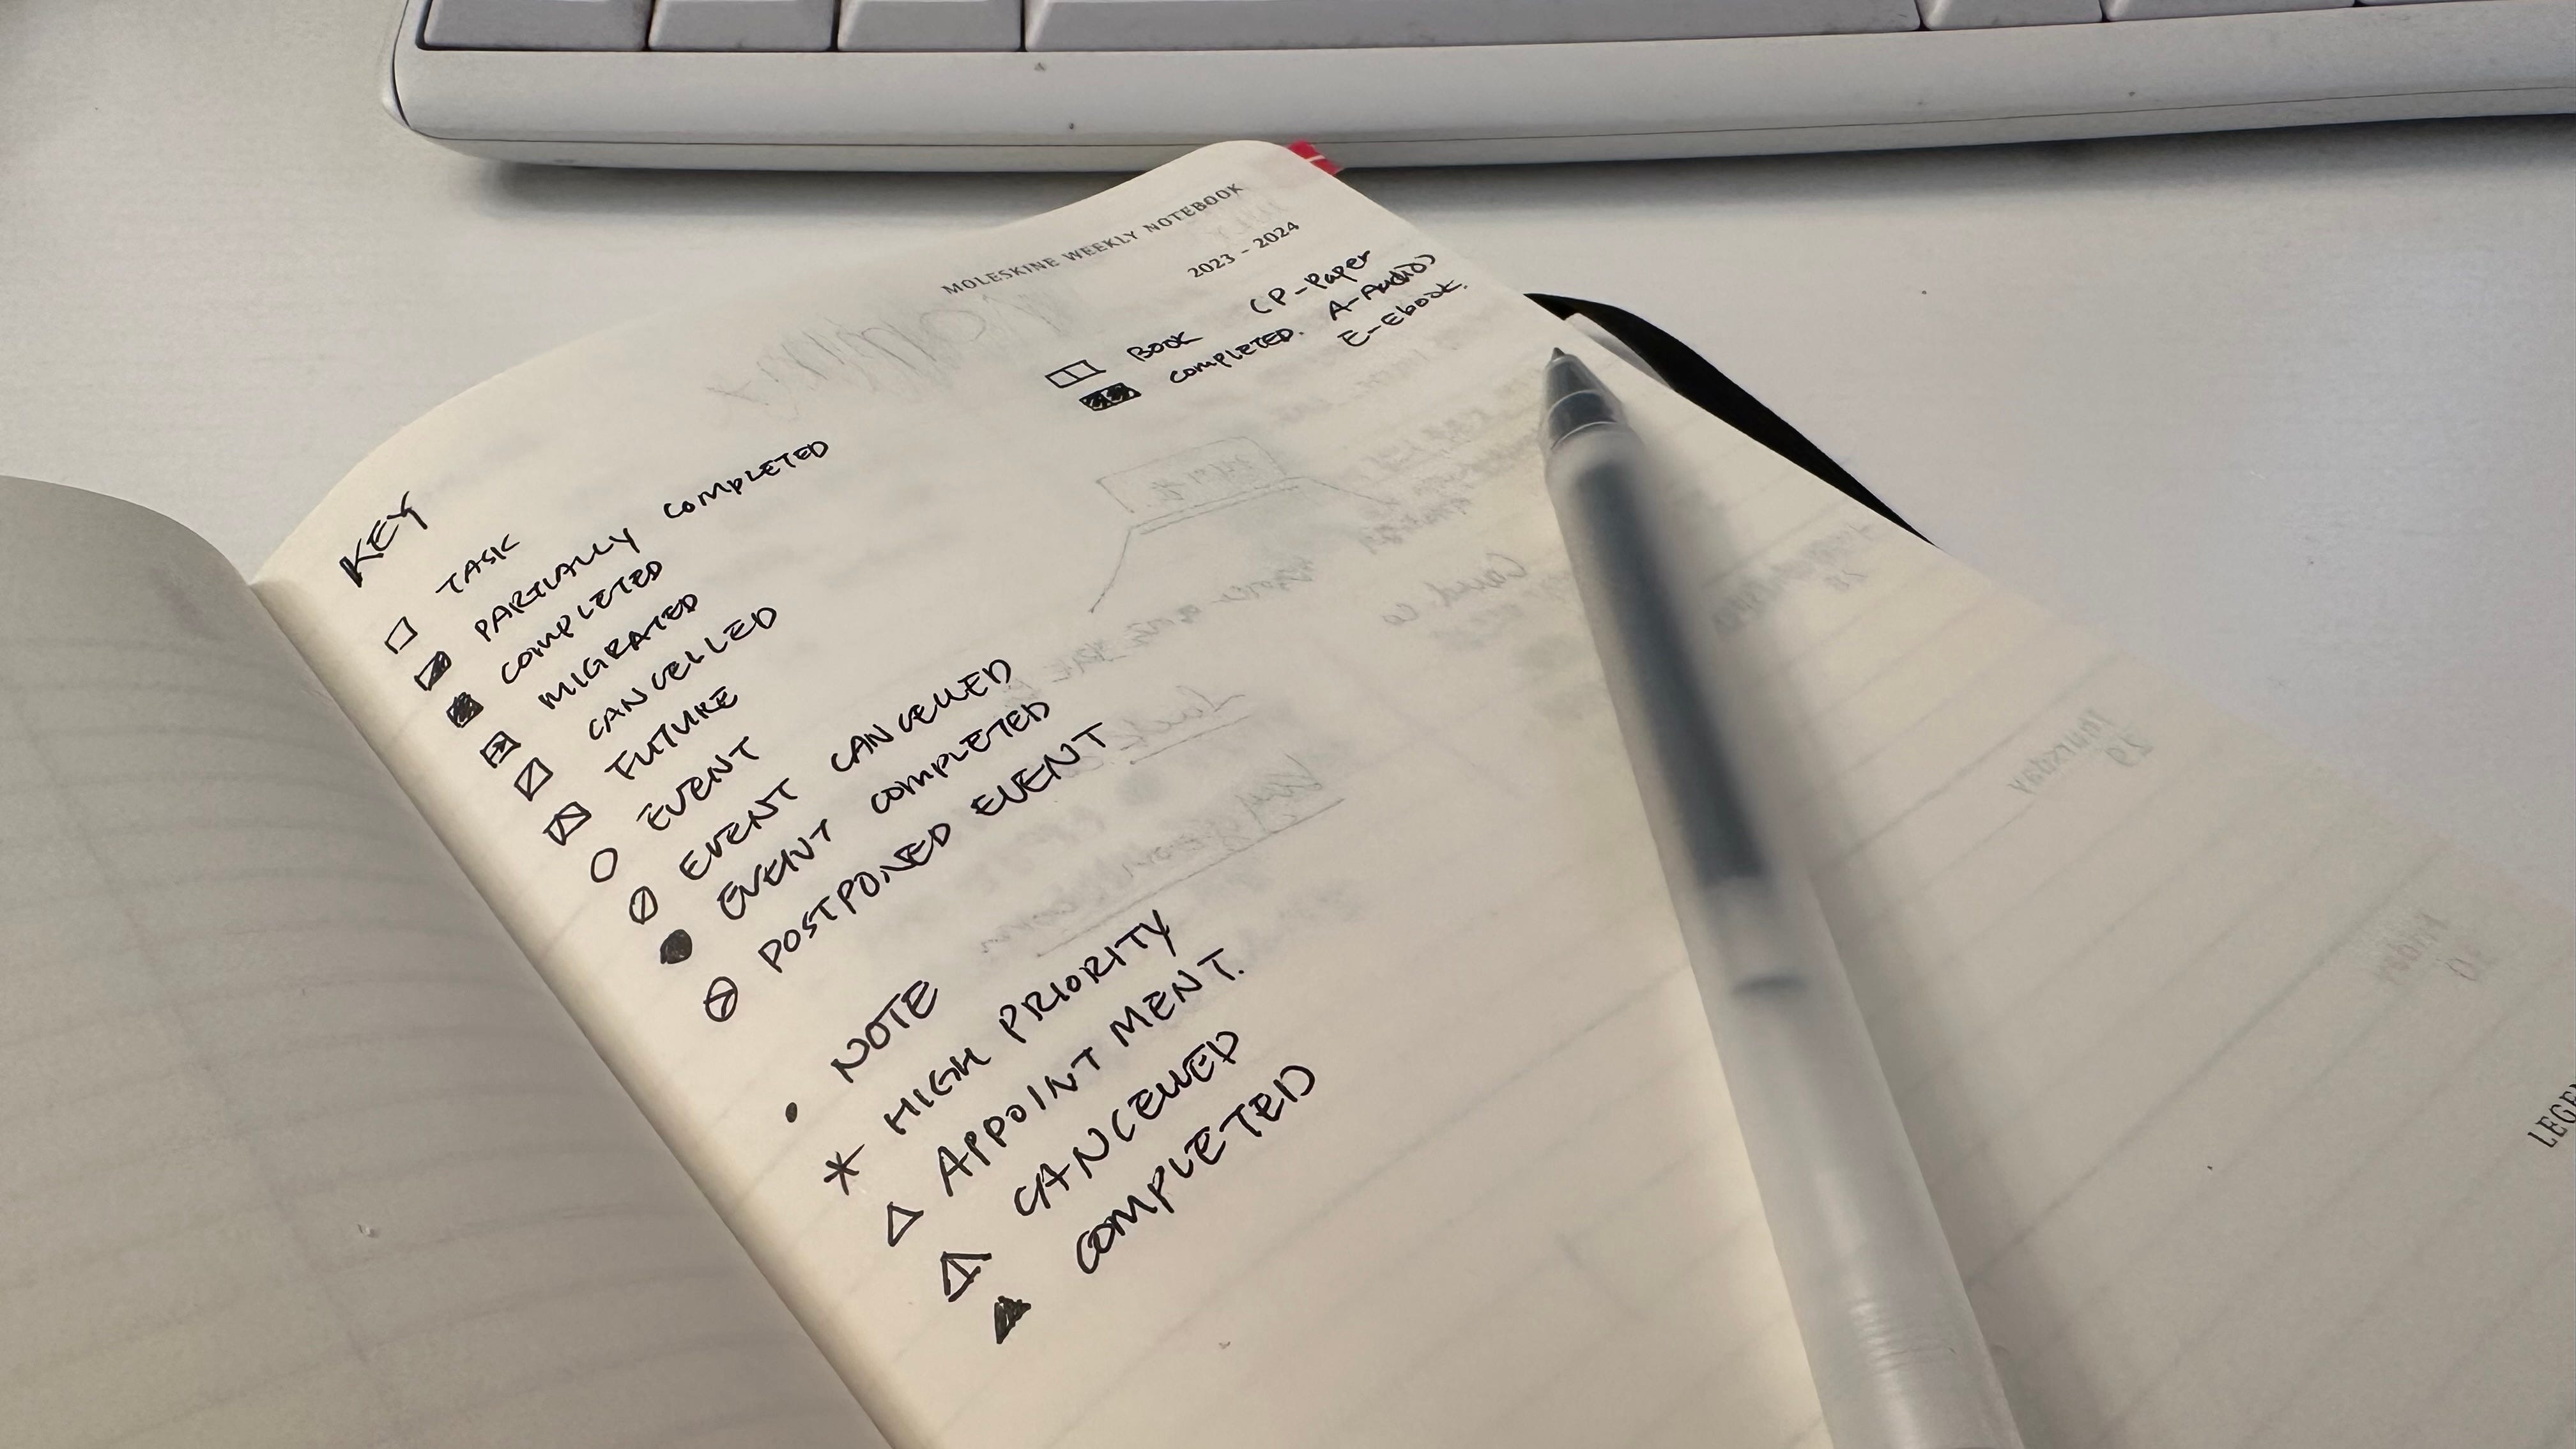 MOLESKINE WEEKLY NOTEBOOK
2023 - 2024
BOOK (P-Paper
COMPLETED. A-Audio)
E-Ebook.
KEY
TASK
PARTIALLY COMPLETED
COMPLETED
MIGRATED
CANCELLED
FUTURE
EVENT
EVENT CANCELLED
EVENT COMPLETED
POSTPONED EVENT
NOTE
HIGH PRIORITY
APPOINTMENT.
CANCELLED
COMPLETED
Thursday
29
Friday
30